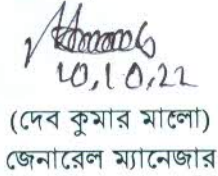 10.10.22
(দেব কুমার মালো)
জেনারেল ম্যানেজার